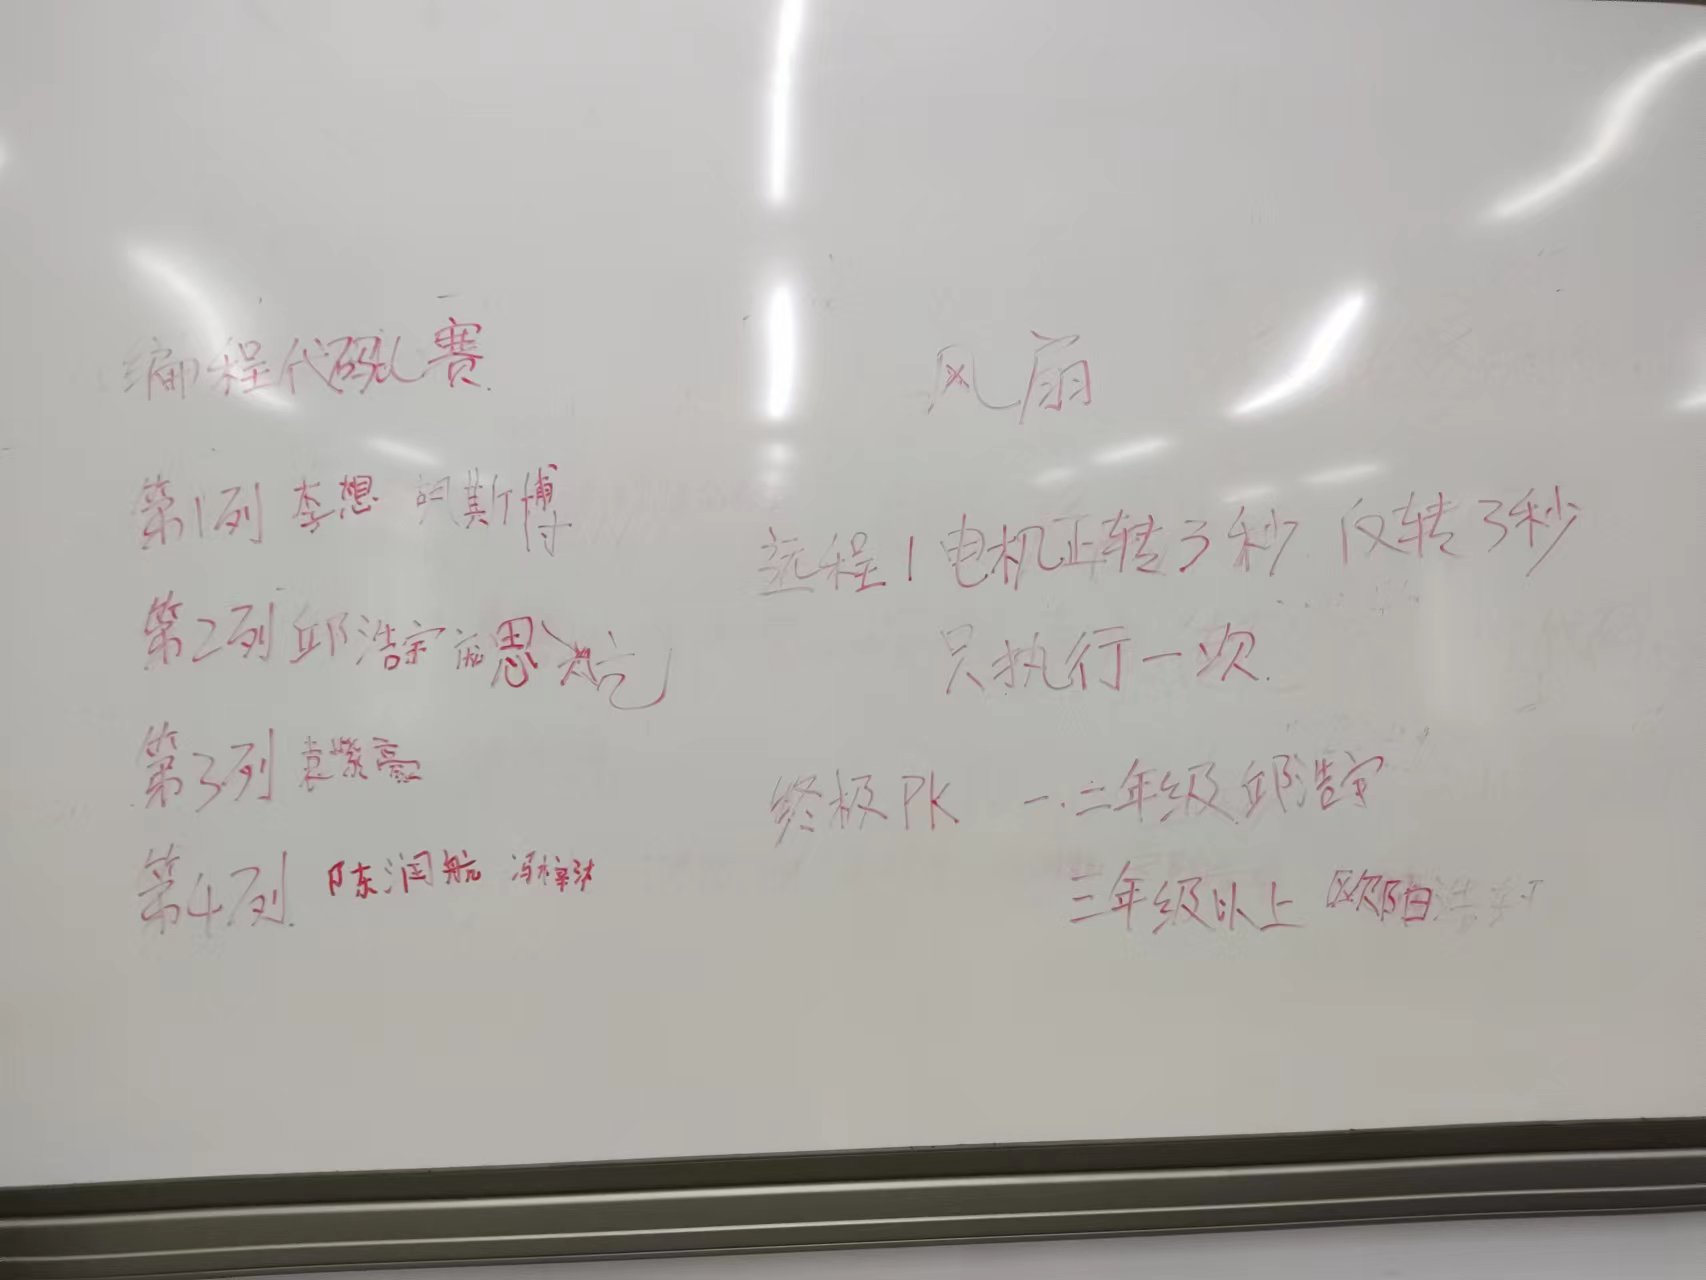 编程代码比赛
第1列 李想 胡斯博
第2列 邱浩宇 思
第3列 袁紫豪
第4列 陈润航 冯梓沐
风扇
远程1 电机正转3秒 反转3秒
只执行一次.
终极PK 一.二年级 邱浩宇
三年级以上 欧阳浩